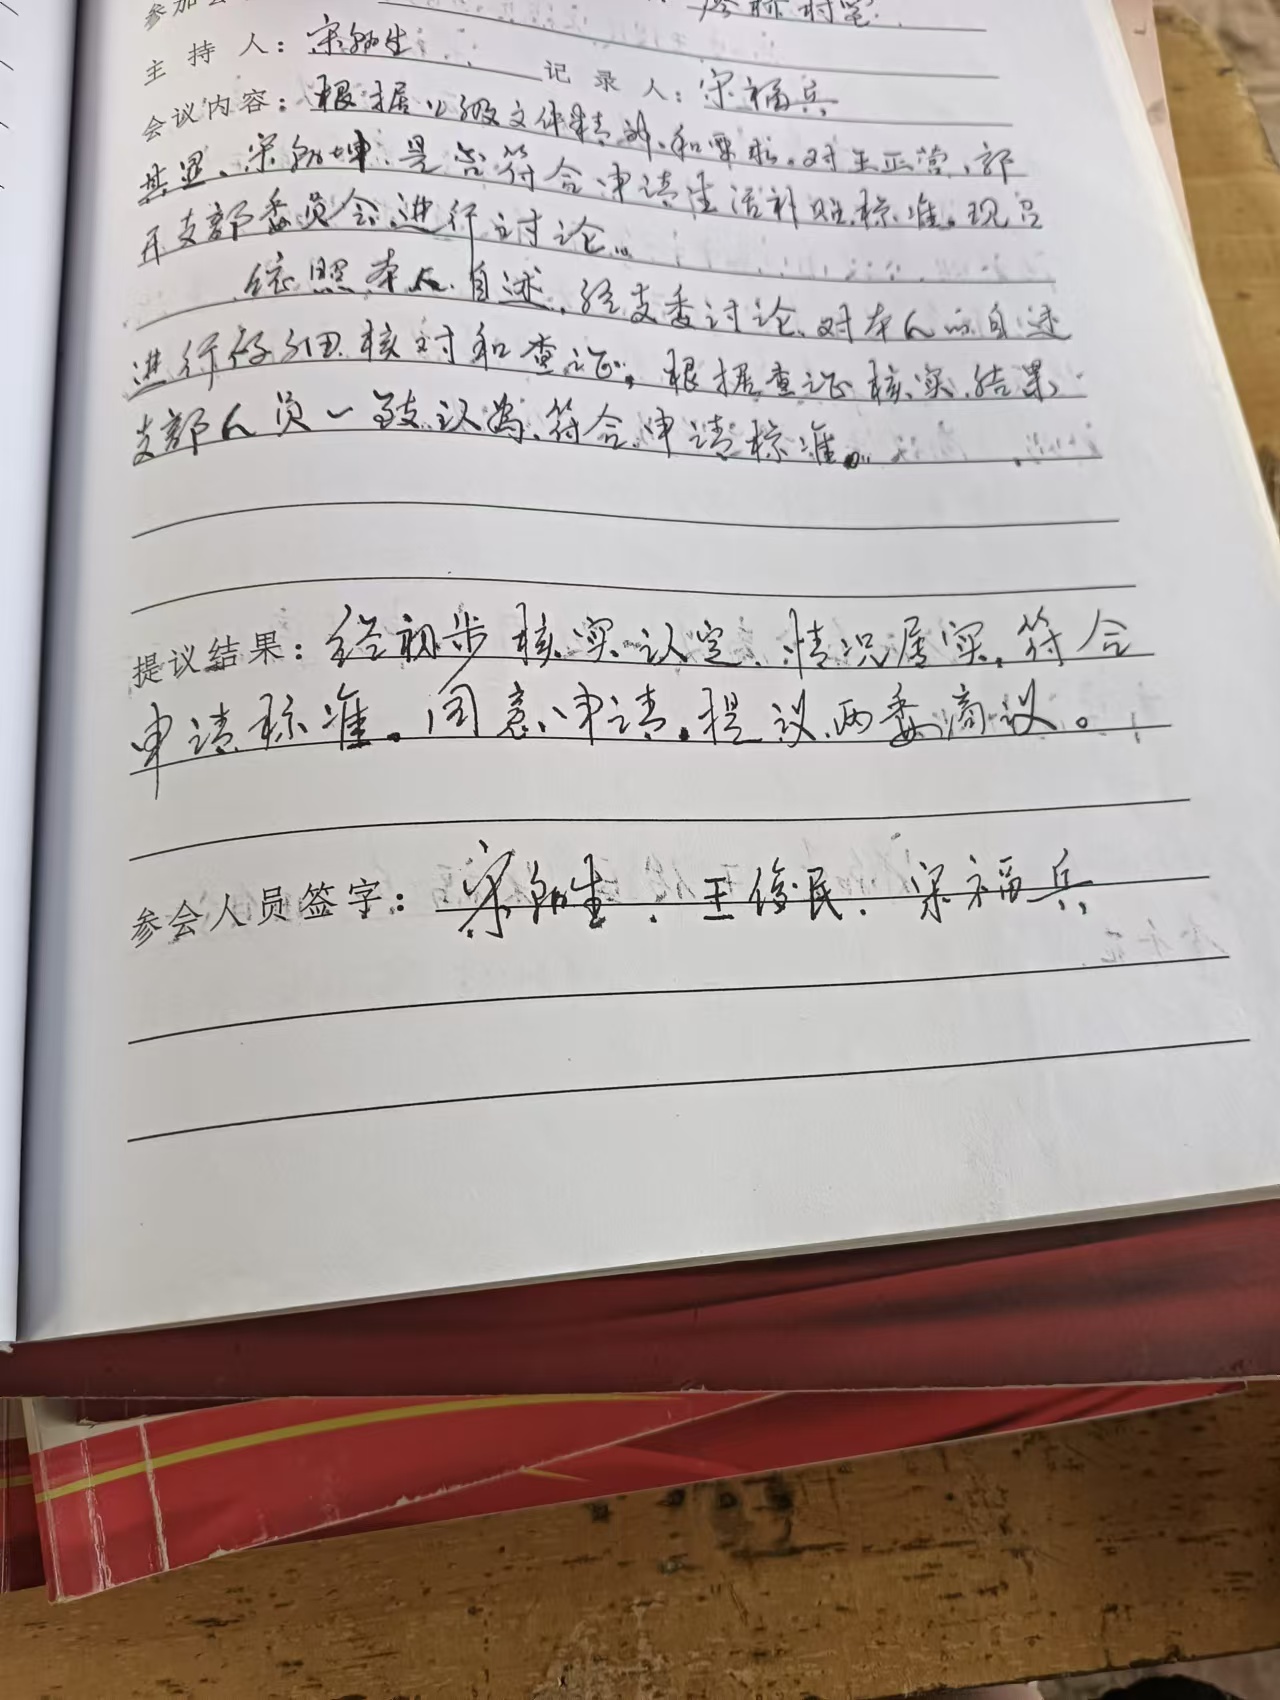 参加会
主 持 人：宋 生 记 录 人：宋福兵
会议内容：根据上级文件精神和要求。对王正营、郭
其显、宋 坤是否符合申请生活补贴标准。现召
开支部委员会进行讨论。
依照本人自述，经支委讨论、对本人的自述
进行仔细核对和查证，根据查证核实结果
支部人员一致认为符合申请标准。
提议结果：经初步核实认定、情况属实，符合
申请标准。同意申请。提议两委商议。
参会人员签字：宋 生、王俊民、宋福兵